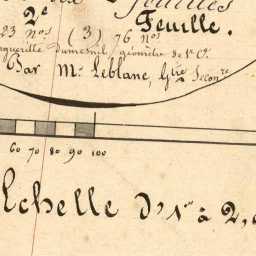 2ᵉ Feuille.
23 Nos (3) 76 nos
Dumesnil, géomètre de 1re Cl.
Par Mr Leblanc, Gtre Secon.re
60 70 80 90 100
Echelle d'1 à 2,